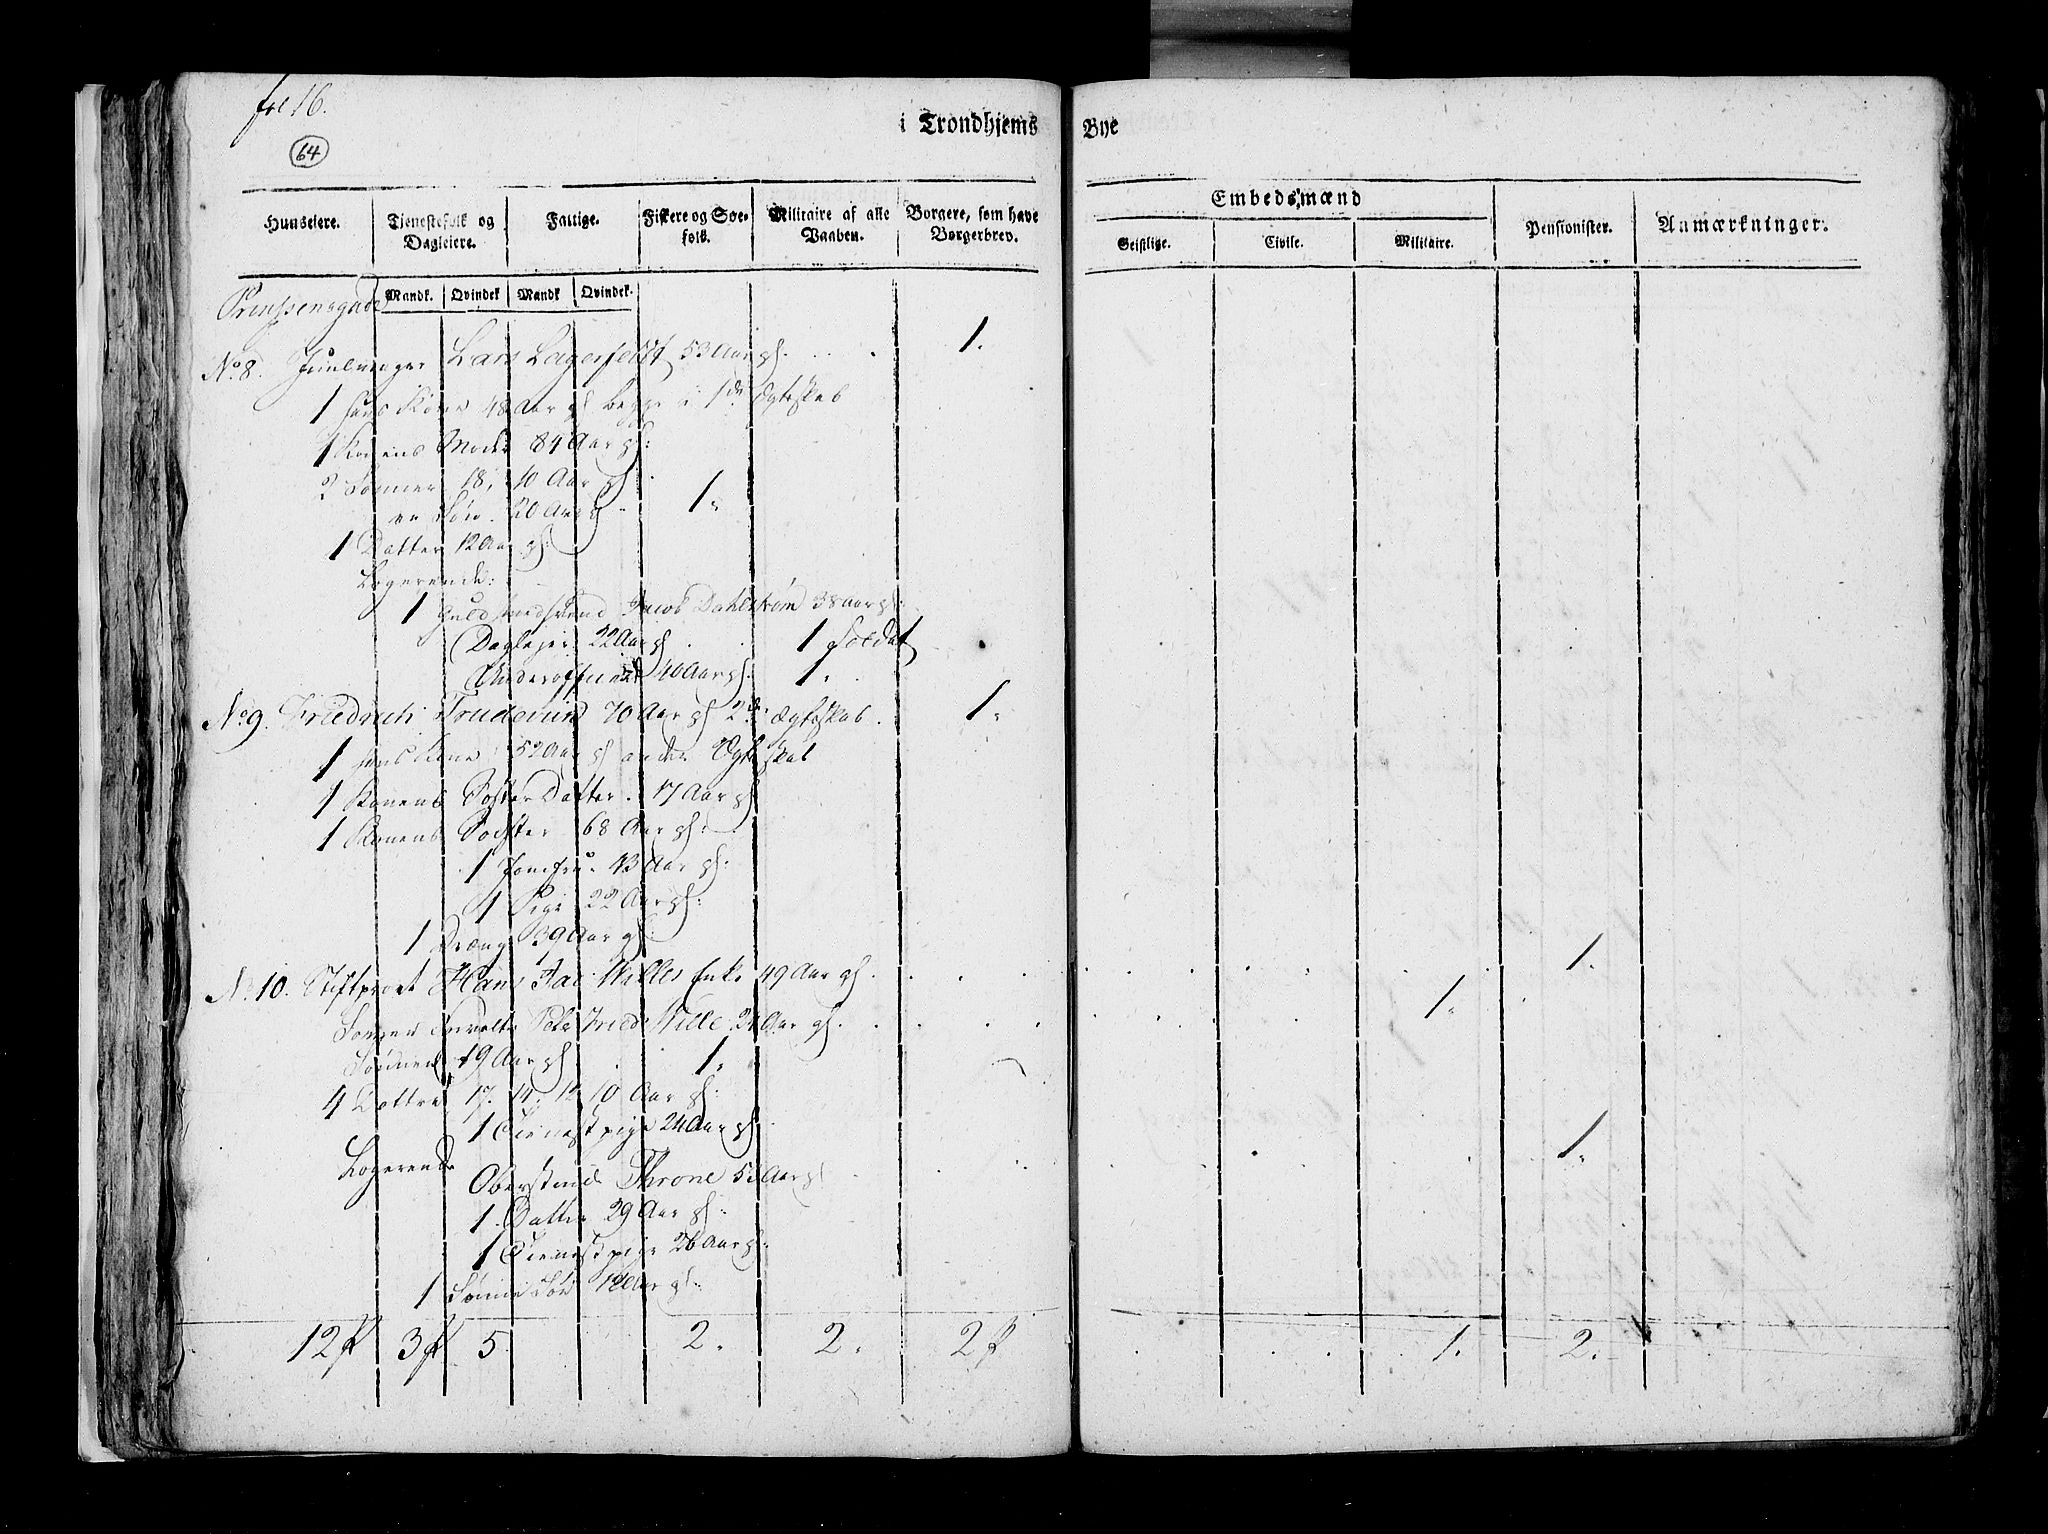 fol 16.
64
i Trondhjems Bye
Huuseiere. Tjenestefolk og Dagleiere. Fattige. Fiskere og Søefolk. Militaire af alle Vaaben. Borgere, som have Borgerbrev. Embedsmænd Geistlige. Civile. Militaire. Pensionister. Anmærkninger.
Mandk. Qvindek Mandk Qvindek.
Prinssensgade
No 8. Lars Lagerfeldt 53 Aar gl. 1.
1 hans Kone 48 Aar gl begge i 1de Ægteskab
1 Konens Moder 84 Aar gl:
2 Sønner 18, 10 Aar gl
en Søn 20 Aar gl 1.
1 Datter 12 Aar gl:
Logerende:
1 Guldsmedsvend Jacob Dahlstrøm 38 Aar gl:
Daglejer 22 Aar gl 1 Soldat
Underofficer 40 Aar gl: 1.
No 9. Friedrich 70 Aar gl 2det Ægteskab. 1.
1 hans Kone 52 Aar gl andet Ægteskab
1 Konens Søster Datter. 17 Aar gl
1 Konens Søster 68 Aar gl:
1 Jomfru. 43 Aar gl.
1 Pige 22 Aar gl:
1 Dreng 39 Aar gl.
No 10. Stiftprovst Hans Jac Willes Enke 49 Aar gl. 1.
Sønnen Wille 21 Aar gl. 1.
Sønnen 19 Aar gl 1.
4 Døttre 17. 14. 12 10 Aar gl:
1 Tienestpige 24 Aar gl.
Logerende
Oberstinde Throne 52 Aar gl 1.
1. Datter 29 Aar gl:
1 Tienestpige 26 Aar gl:
1 Sønne Søn 12 Aar gl:
12 3 5. 2. 2. 2 1. 2.